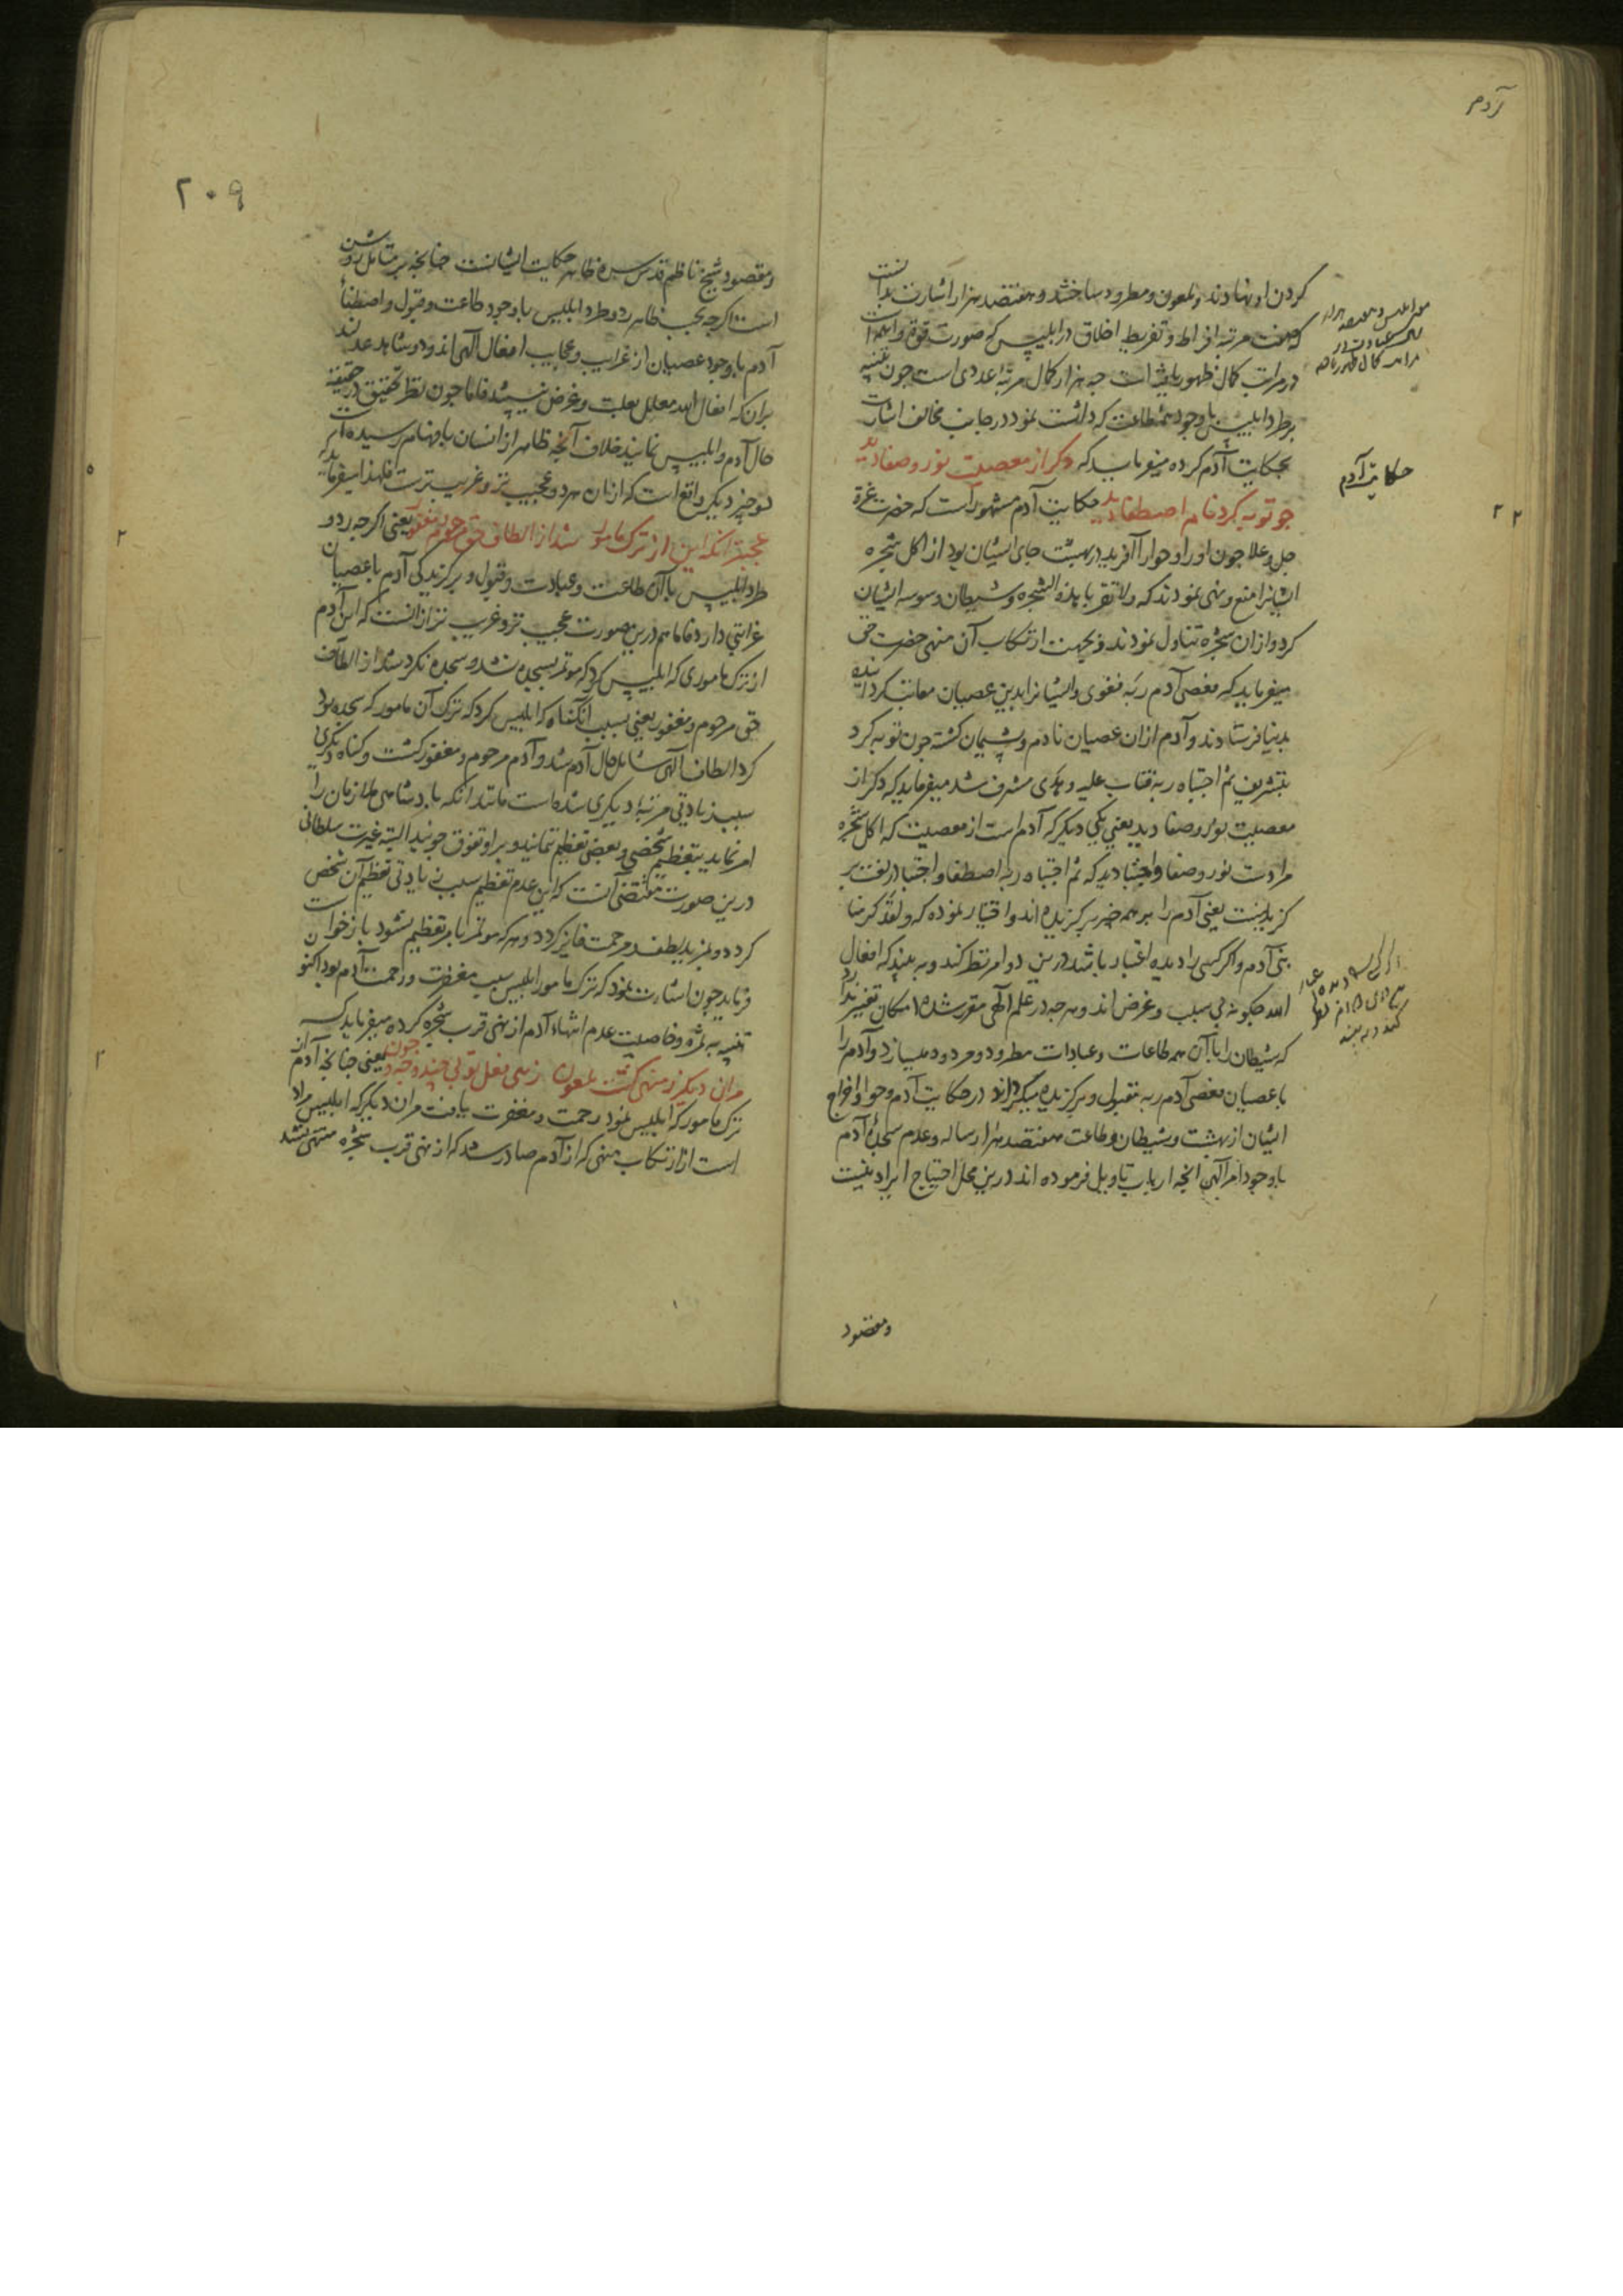 آدم
کردن او نهادند و ملعون و مطرود ساختند و هفتصد هزار اشارت بدانست
که هفت مرتبه افراط و تفریط اخلاق در ابلیس که صورت قوة واهمه است
در مراتب کمال ظهور یافته است چه هزار کمال مرتبه اعددی است چون تنبیه
بر طرد ابلیس با وجود همه طاعت که داشت نمود در جانب مخالف اشارت
بحکایت آدم کرده میفرماید که دکر از معصیت نور و صفا دید
چو توبه کرد نام اصطفا دید حکایت آدم مشهور است که حضرت عزة
جل و علا چون او را و حوا را آفرید در بهشت جای ایشان بود از اکل شجره
ایشانرا منع و نهی نمودند که ولا تقربا هذه الشجره و شیطان وسوسه ایشان
کرد و ازان شجره تناول نمودند و بجهت ارتکاب آن منهی حضرت حق
میفرماید که فعصی آدم ربه فغوی و ایشانرا بدین عصیان معاتب کردانیده
بدنیا فرستادند و آدم ازان عصیان نادم و پشیمان کشته چون توبه کرد
بتشریف ثم اجتباه ربه فتاب علیه و هدی مشرف شد میفرماید که دکر از
معصیت نور و صفا دید یعنی یکی دیکر که آدم است از معصیت که اکل شجره
مرادست نور و صفا و اجتبا دید که ثم اجتباه ربه اصطفا و اجتبا در لغت بر
کزیدنست یعنی آدم را بر همه چیز برکزیده اند و اختیار نموده که ولقد کرمنا
بنی آدم و اکر کسی را دیده اعتبار باشد درین دو امر نظر کند و به بیند که افعال
الله چکونه بی سبب و غرض اند و هر چه در علم آلهی مقرر شده امکان تغییر ندارد
که شیطان را با آن همه طاعات و عبادات مطرود و مردود میسازد و آدم را
با عصیان فعصی آدم ربه مقبول و برکزیده میکرداند در حکایت آدم و حوا و اخراج
ایشان از بهشت و شیطان و طاعت هفتصد هزار ساله و عدم سجدۀ آدم
با وجود امر آلهی آنچه ارباب تاویل فرموده اند درین محل احتیاج ایراد نیست
و مقصود
حکایت آدم
۲۲
۲۰۹
و مقصود شیخ ناظم قدس سره ظاهر حکایت ایشانست چنانچه بر متامل روشن
است اکر چه بحسب ظاهر رد و طرد ابلیس با وجود طاعت و قبول و اصطفاء
آدم با وجود عصیان از غرایب و عجایب افعال آلهی اند و دو شاهد عدلند
بران که افعال الله معلل بعلت و غرض نیستند فاما چون نظر تحقیق در حقیقت
حال آدم و ابلیس نمایند خلاف آنچه ظاهر از انسان بافهام رسیده است
دو چیز دیکر واقع است که ازان هر دو عجیب تر و غریب ترست فلهذا میفرماید
عجبتر آنکه این از ترک مامور شد از الطاف حق مرحوم و مغفور یعنی اکر چه رد و
طرد ابلیس با آن طاعت و عبادت و قبول و برکزیدکی آدم با عصیان
غرابتی دارد فاما هم درین صورت عجیب تر و غریب تر از آنست که این آدم
از ترک ماموری که ابلیس کرد که موتمر بسجده نشد و سجده نکرد شد از الطاف
حق مرحوم و مغفور یعنی بسبب آنکناه که ابلیس کرد که ترک آن مامور که سجده بود
کرد الطاف آلهی شامل حال آدم شد و آدم مرحوم و مغفور کشت و کناه دیکری
سبب زیادتی مرتبۀ دیکری شده است مانند آنکه پادشاهی ملازمان را
امر نماید بتعظیم شخصی و بعضی تعظیم ننمایند و بر او تفوق جویند البته غیرت سلطانی
درین صورت مقتضی آنست که این عدم تعظیم سبب زیادتی تعظیم آن شخص
کردد و بمزید لطف و مرحمت فایز کردد و هر که موتمر بامر تعظیم نشود بازخواست
فرماید چون اشارت نمود که ترک مامور ابلیس سبب مغفرت و رحمت آدم بود اکنون
تنبیه به ثمره و خاصیت عدم انتهاء آدم از نهی قرب شجره کرده میفرماید که
مران دیکر ز منهی کشت ملعون زهی فعل تو بی چند و چه و چون یعنی چنانچه آدم از
ترک مامور که ابلیس نمود رحمت و مغفرت یافت مران دیکر که ابلیس مراد
است از ارتکاب منهی که از آدم صادر شد که از نهی قرب شجره منتهی نشد